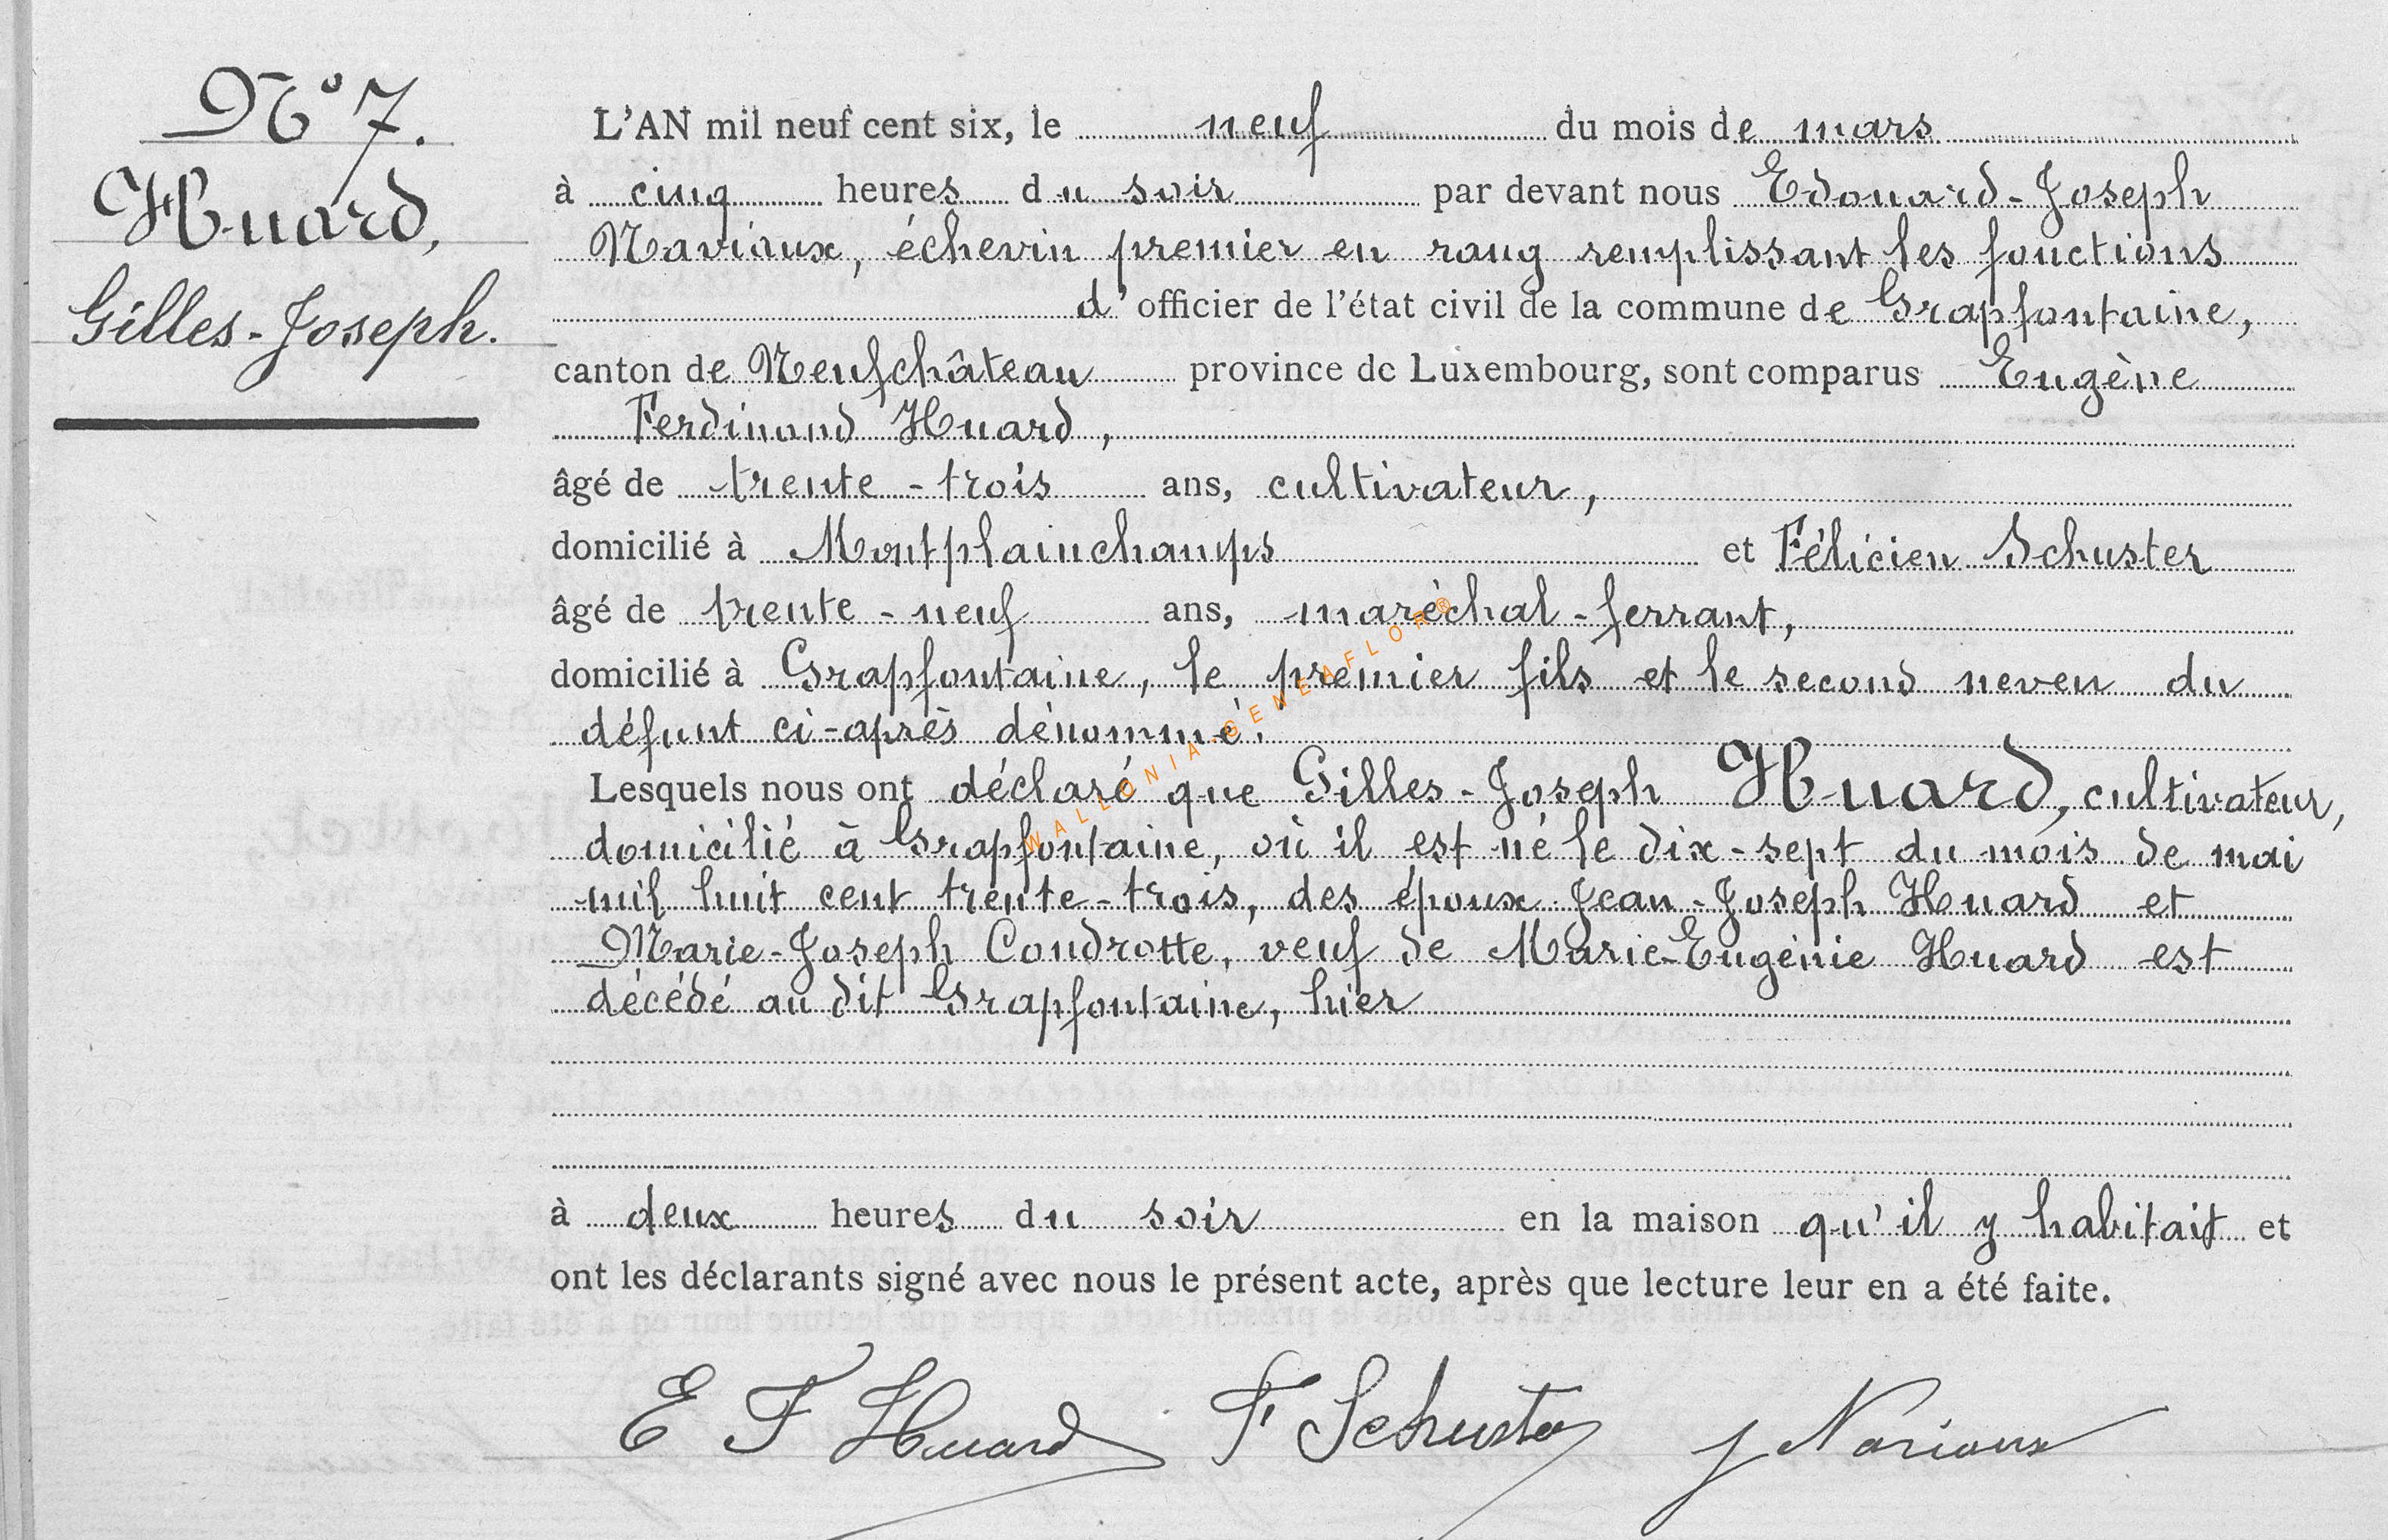 N° 7.
Huard,
Gilles-Joseph.
L'AN mil neuf cent six, le neuf du mois de mars
à cinq heures du soir par devant nous Edouard-Joseph
Naviaux, échevin premier en rang remplissant les fonctions
d' officier de l'état civil de la commune de Grapfontaine,
canton de Neufchâteau province de Luxembourg, sont comparus Eugène
Ferdinand Huard,
âgé de trente-trois ans, cultivateur,
domicilié à Montplainchamps et Félicien Schuster
âgé de trente-neuf ans, maréchal-ferrant,
domicilié à Grapfontaine, le premier fils et le second neveu du
défunt ci-après dénommé.
Lesquels nous ont déclaré que Gilles-Joseph Huard, cultivateur,
domicilié à Grapfontaine, où il est né le dix-sept du mois de mai
mil huit cent trente-trois, des époux Jean-Joseph Huard et
Marie-Joseph Condrotte, veuf de Marie-Eugénie Huard est
décédé au dit Grapfontaine, hier
à deux heures du soir en la maison qu'il y habitait et
ont les déclarants signé avec nous le présent acte, après que lecture leur en a été faite.
E F Huard F Schuster J Naviaux
WALLONIA-GENEAFLOR®